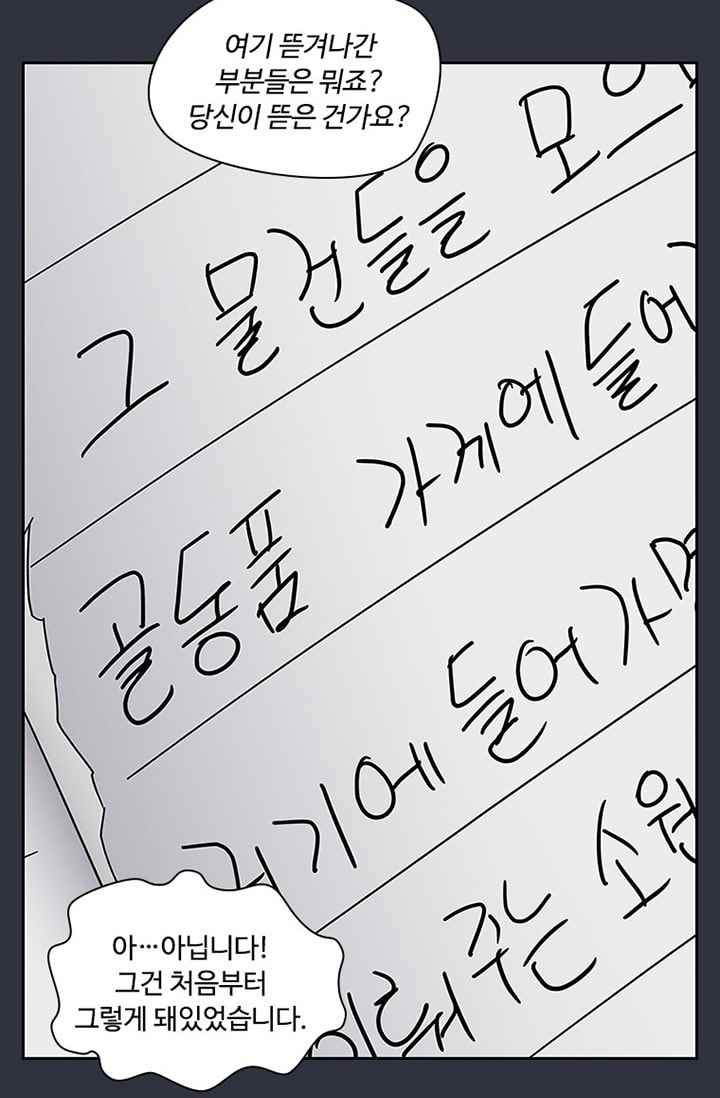 여기 뜯겨나간
부분들은 뭐죠?
당신이 뜯은 건가요?
그 물건들을 모으
골동품 가게에 들어
거기에 들어가면
이뤄 주는 소원
아…아닙니다!
그건 처음부터
그렇게 돼있었습니다.